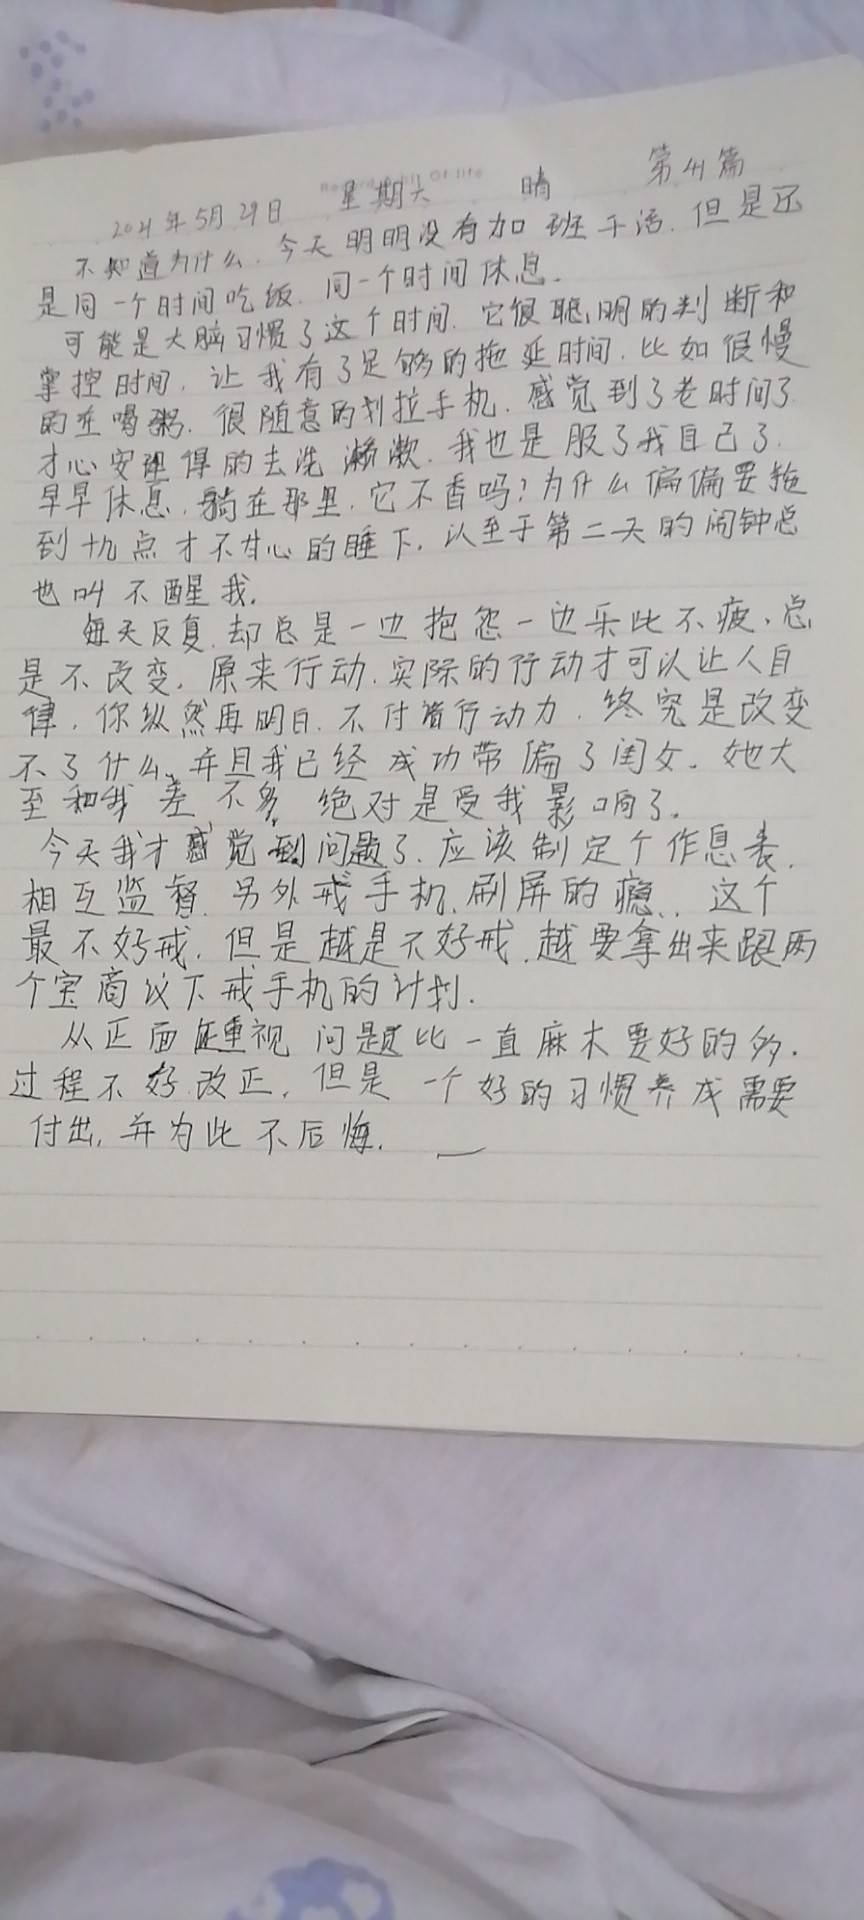 Record Of life
2021年5月29日 星期六 晴 第41篇
不知道为什么.今天明明没有加班干活.但是还
是同一个时间吃饭.同一个时间休息.
可能是大脑习惯了这个时间.它很聪明的判断和
掌控时间.让我有了足够的拖延时间.比如很慢
的在喝粥.很随意的划拉手机.感觉到了老时间了
才心安理得的去洗濑漱.我也是服了我自己了.
早早休息.躺在那里.它不香吗?为什么偏偏要拖
到十九点才不甘心的睡下.以至于第二天的闹钟总
也叫不醒我.
每天反复.却总是一边抱怨一边乐此不疲.总
是不改变.原来行动.实际的行动才可以让人自
律.你纵然再明白.不付诸行动力.终究是改变
不了什么.并且我已经成功带偏了闺女.她大
至和我差不多,绝对是受我影响了.
今天我才感觉到问题了.应该制定个作息表.
相互监督.另外戒手机.刷屏的瘾..这个
最不好戒.但是越是不好戒.越要拿出来跟两
个宝商议下戒手机的计划.
从正面重视问题比一直麻木要好的多.
过程不好改正.但是一个好的习惯养成需要
付出,并为此不后悔.